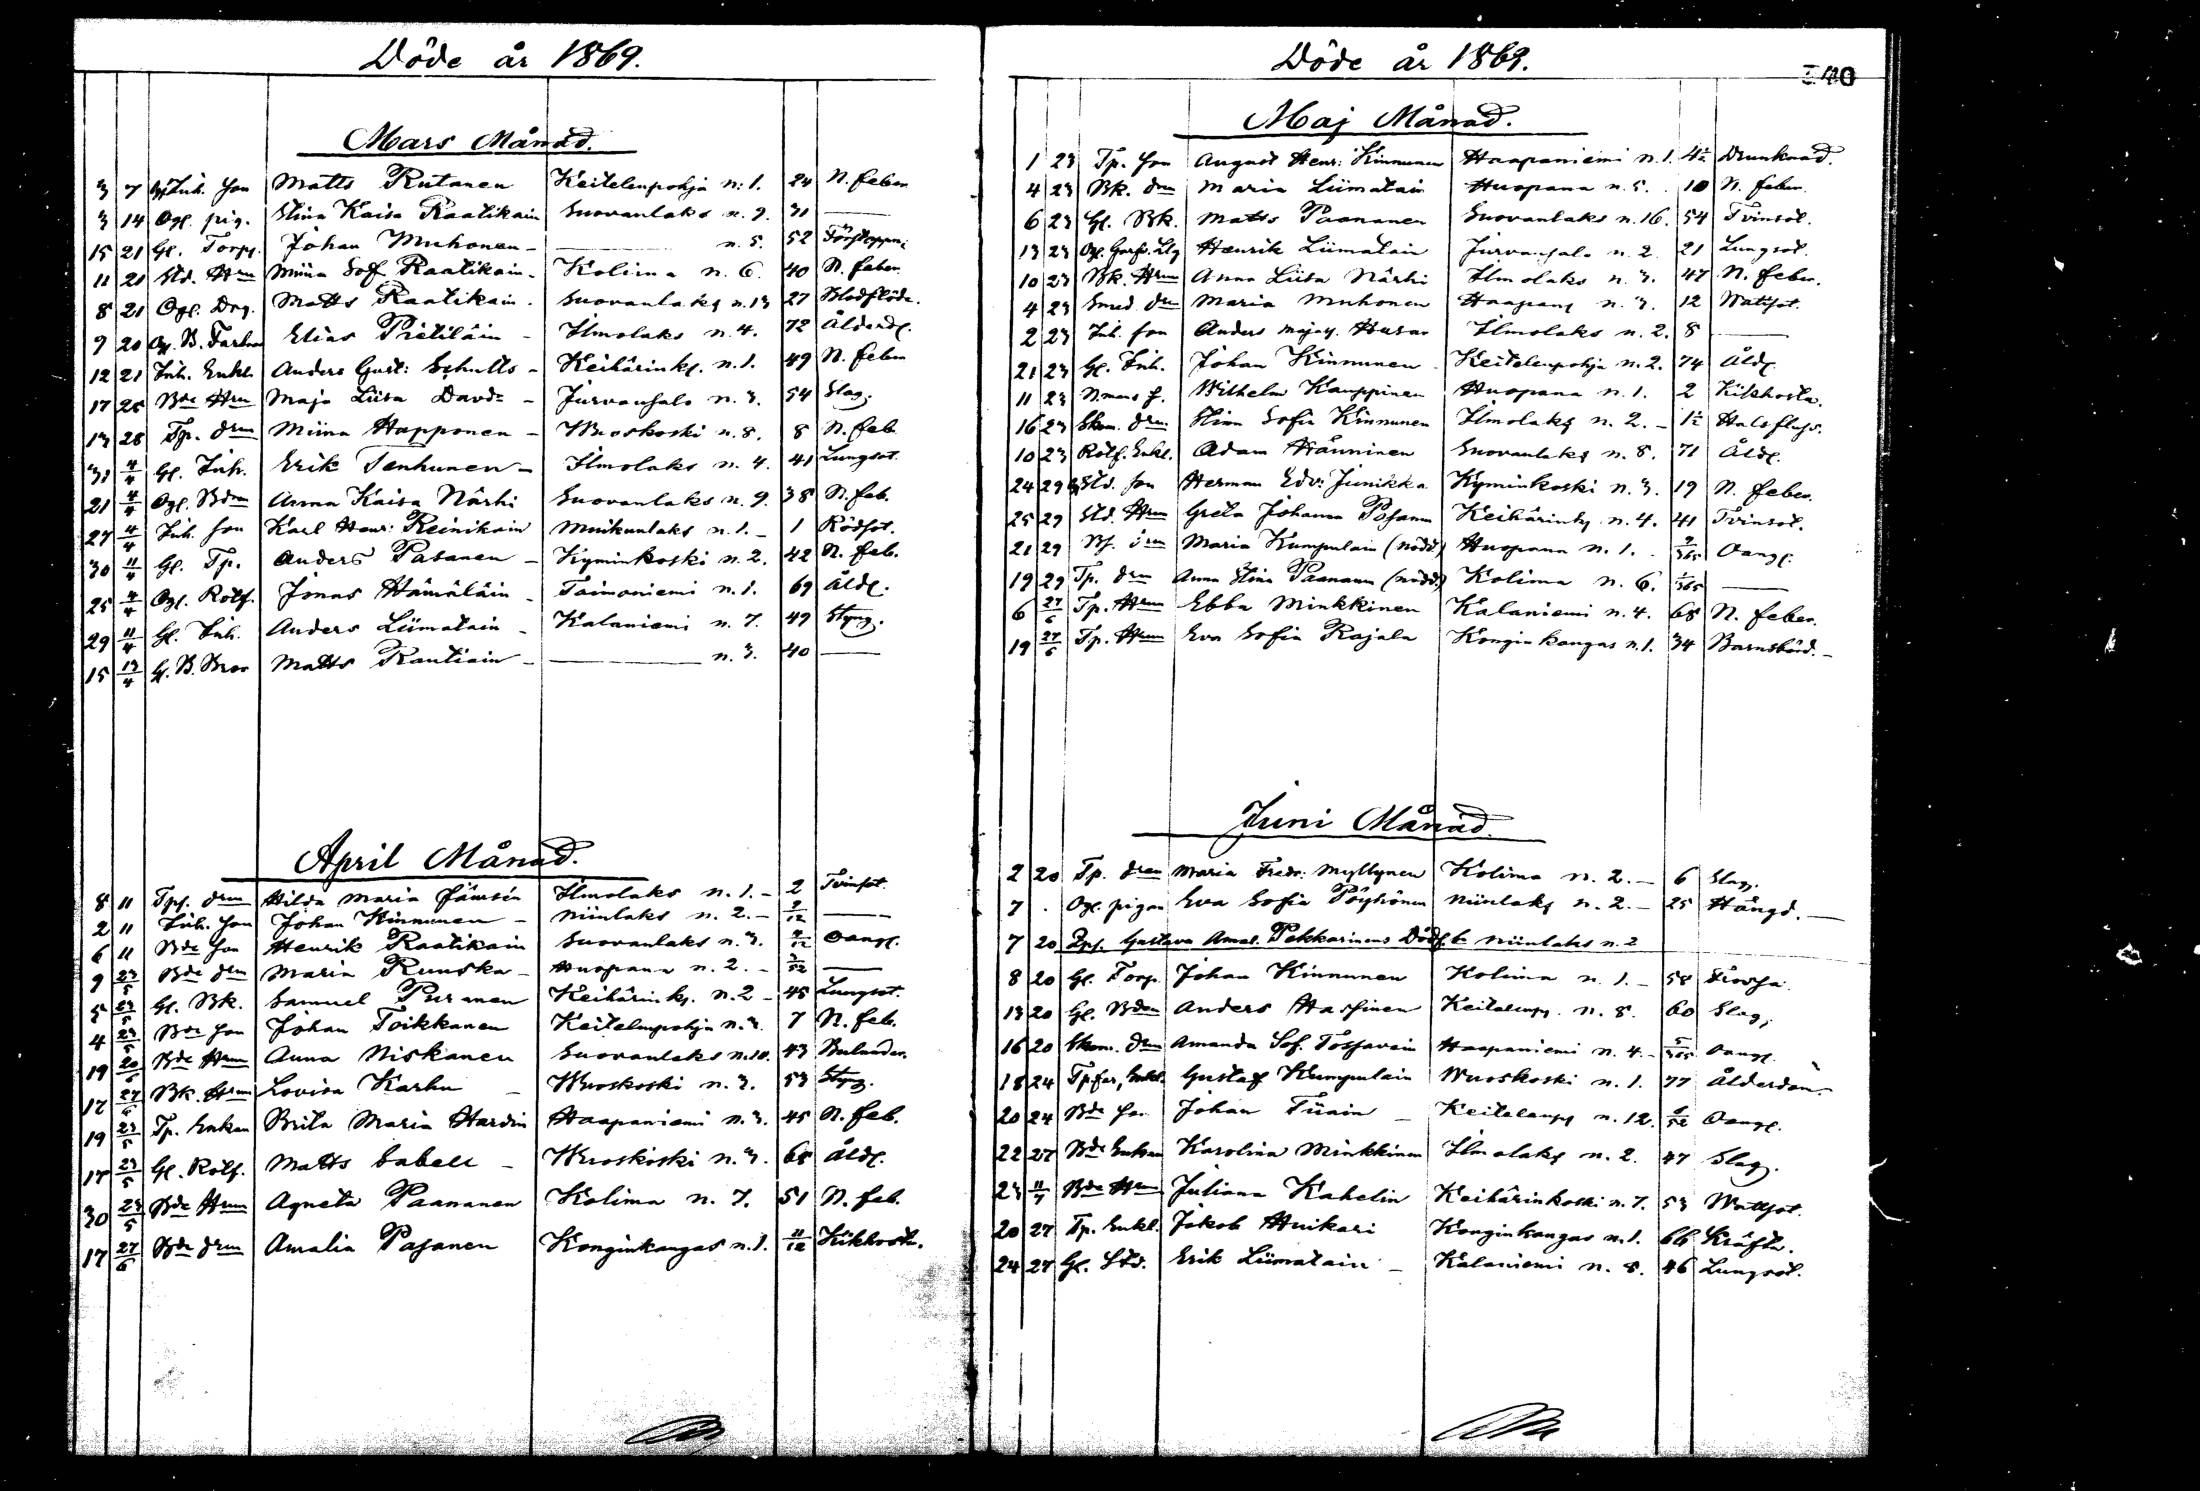 Döde år 1869.
Mars Månad.
3 7 Inh. son Matts Rutanen Keitelenpohja n: 1. 24 N. feber
3 14 Ogl. pig. Stina Kaisa Raatikain Suovanlaks n. 9. 31 —
15 21 Gl. Torp. Johan Muhonen — n. 5. 52 Förstoppn:
11 21 Std. Hru Miina Sof. Raatikain - Kolima n. 6. 40 N. feber
8 21 Ogl. Drg. Matts Raatikain - Suovanlaks n. 13 27 Blodflöde.
9 20 B. Farbror Elias Pietiläin - Ilmolaks n. 4. 72 Ålderd.
12 21 Inh. Enkl. Anders Gust: Schults - Keihärinks. n. 1. 49 N. feber
17 28 Bde Hru Maja Liisa Davd: - Jurvansalo n. 3. 54 Slag.
13 28 Tp. drn Miina Happonen - Wuoskoski n. 8. 8 N. feb.
31 4/4 Gl. Inh. Erik Tenhunen - Ilmolaks n. 4. 41 Lungsot.
21 4/4 Ogl. Bdrn Anna Kaisa Närhi Suovanlaks n. 9. 38 N. feb.
27 4/4 Inh. son Karl Henr: Reinikain Muikunlaks n. 1. - 1 Rödsot.
30 11/4 Gl. Tp. Anders Pasanen - Kyminkoski n. 2. 42 N. feb.
25 4/4 Ogl. Rotf. Jonas Hämäläin - Taimoniemi n. 1. 69 Åld.
29 11/4 Gl. Inh. Anders Liimatain - Kalaniemi n. 7. 49 Styng.
15 13/4 G. B. Bror Matts Rautiain - — n. 3. 40 —
April Månad.
8 11 Tps. drn Hilda Maria Jämsén Ilmolaks n. 1. - 2 Tvinsot.
2 11 Inh. son Johan Kinnunen - Niinlaks n. 2. - 9/12 —
6 11 Bde son Henrik Raatikain Suovanlaks n. 3. Oang.
9 23/5 Bde drn Maria Ruuska - Huopana n. 2. - 3/52 —
5 23/5 Gl. Bk. Samuel Puranen Keihärinks. n. 2 - 45 Lungsot.
4 23/5 Bde son Johan Toikkanen Keitelenpohja n. 3. 7 N. feb.
19 20/6 Bde Hru Anna Niskanen Suovanlaks n. 10. 43 Bulnader.
17 27/6 Bk. Hru Lovisa Karhu - Wuoskoski n. 3. 53 Styng.
19 23/5 Tp. Enkan Brita Maria Hardin Haapaniemi n. 3. 45 N. feb.
17 23/5 Gl. Rotf. Matts Sabell - Wuoskoski n. 3. 68 Åld.
30 23/5 Bde Hru Agneta Paananen Kolima n. 7. 51 N. feb.
17 27/6 Bde drn Amalia Pasanen Konginkangas n. 1. 11/12 Kikhosta.
Döde år 1869.
140
Maj Månad.
1 23 Tp. son August Henr: Kinnunen Haapaniemi n. 1. 4½ Drunknad.
4 23 Bk. drn Maria Liimatain Huopana n. 5. 10 N. feber.
6 23 Gl. Bk. Matts Paananen Suovanlaks n. 16. 54 Tvinsot.
13 23 Henrik Liimatain Jurvansalo n. 2 21 Lungsot.
10 23 Bk. Hru Anna Liisa Närhi Ilmolaks n. 3. 47 N. feber.
4 23 Smed drn Maria Muhonen Haapana n. 3. 12 Wattsot.
2 23 Inh. son Anders Ilmolaks n. 2. 8 —
21 23 Gl. Inh. Johan Kinnunen - Keitelenpohja n. 2. 74 Åld.
11 23 Nmans f. Wilhelm Kauppinen Huopana n. 1. 2 Kikhosta.
16 23 Skom. drn Stina Sofia Kinnunen Ilmolaks n. 2. - 1½ Halsfluss.
10 23 Rotf. Enkl. Adam Hänninen Suovanlaks n. 8. 71 Åld.
24 29 Std. son Herman Edv: Junikka Kyminkoski n. 3. 19 N. feber.
25 29 Std. Hru Greta Johanna Pasanen Keihärinks. n. 4. 41 Tvinsot.
21 29 Maria Kumpulain (nödd.) Huopana n. 1. 9/365 Oang.
19 29 Tp. drn Anna Stina Paananen (nödd.) Kolima n. 6. 1/365 —
6 27/6 Tp. Hru Ebba Minkkinen Kalaniemi n. 4. 68 N. feber.
19 27/6 Tp. Hru Eva Sofia Rajala Konginkangas n. 1. 34 Barnsbörd. -
Juni Månad.
2 20 Tp. drn Maria Fredr: Myllynen Kolima n. 2. - 6 Slag.
7 . Ogl. pigan Eva Sofia Pöyhönen Niinlaks n. 2. - 25 Hängd. —
7 20 Gustava Amal. Pekkarinens Dödf. b Niinlaks n. 2
8 20 Gl. Torp. Johan Kinnunen Kolima n. 1. - 58
13 20 Gl. Bden Anders Hassinen Keitelenp. n. 8. 60 Slag.
16 20 Skom. drn Amanda Sof. Tossavain Haapaniemi n. 4. - 5/365 Oang.
18 24 Gustaf Kumpulain Wuoskoski n. 1. 77 Ålderdom
20 24 Bde son Johan Tiiain - Keitelenp n. 12. Oang.
22 27 Bde Enkan Karolina Minkkinen Ilmolaks n. 2. 47 Slag.
23 11/7 Bde Hru Juliana Kahelin Keihärinkoski n. 7. 53 Wattsot.
20 27 Tp. Enkl. Jakob Huikari Konginkangas n. 1. 66 Kräfta.
24 27 Gl. Std. Erik Liimatain - Kalaniemi n. 8. 46 Lungsot.